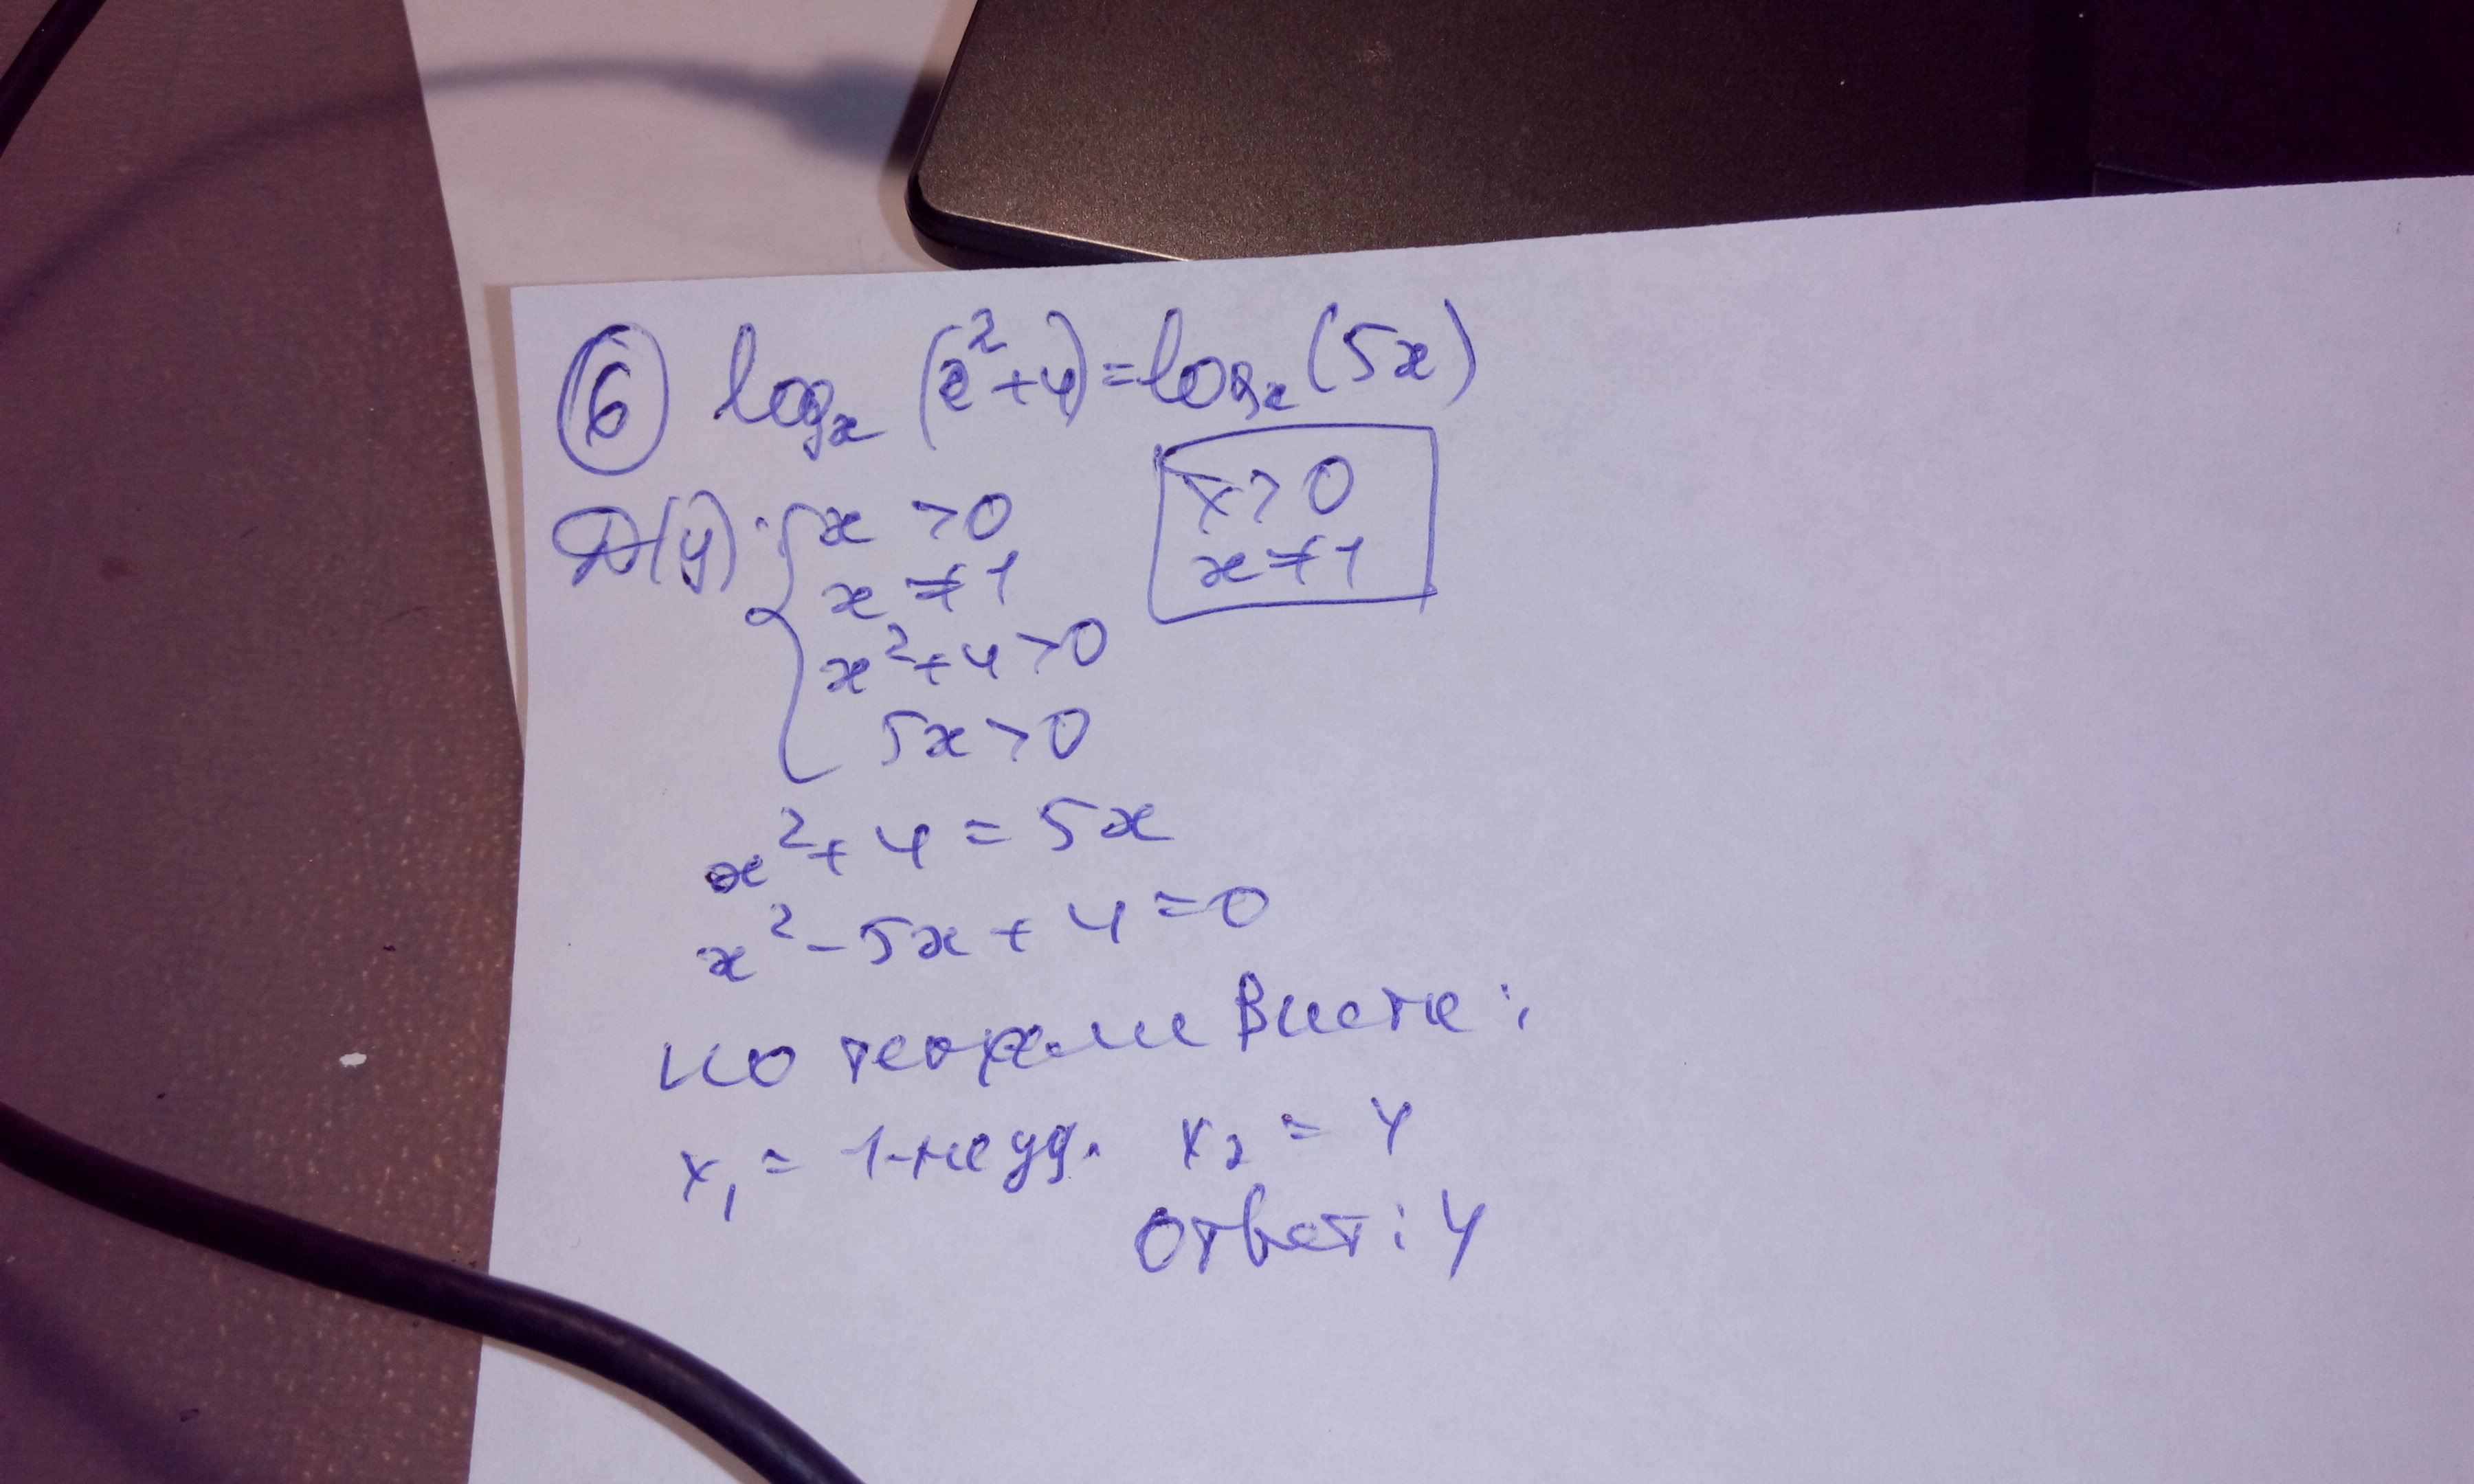 6 logₓ (x²+4)=logₓ (5x)
D(y): { x > 0
x ≠ 1
x²+4 > 0
5x > 0
x > 0
x ≠ 1
x²+4 = 5x
x²-5x+4=0
по теореме Виета:
x₁ = 1-не уд. x₂ = 4
Ответ: 4